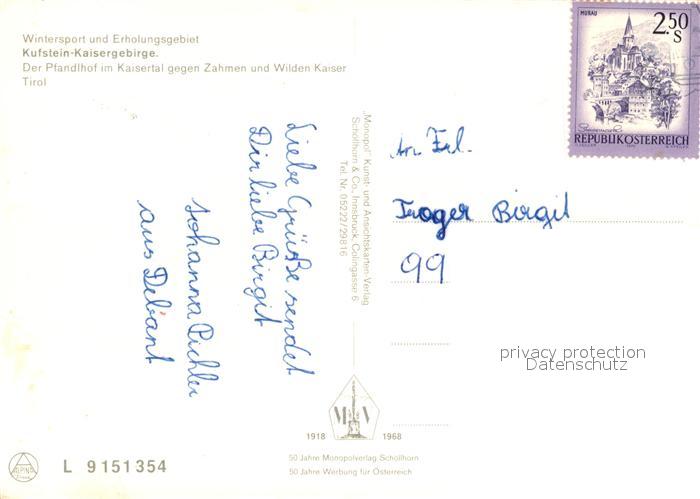 Wintersport und Erholungsgebiet
Kufstein-Kaisergebirge.
Der Pfandlhof im Kaisertal gegen Zahmen und Wilden Kaiser
Tirol
Liebe Grüße sendet
Dir liebe Birgit
Johanna Pichler
aus Debant
„Monopol" Kunst- und Ansichtskarten-Verlag
Schöllhorn & Co., Innsbruck, Colingasse 6
Tel. Nr. 05222/29816
MURAU
2.50
S
REPUBLIK ÖSTERREICH
An Frl.
Troger Birgit
99
privacy protection
Datenschutz
M V
1918 1968
50 Jahre Monopolverlag Schöllhorn
50 Jahre Werbung für Österreich
ALPINA
L 9151354